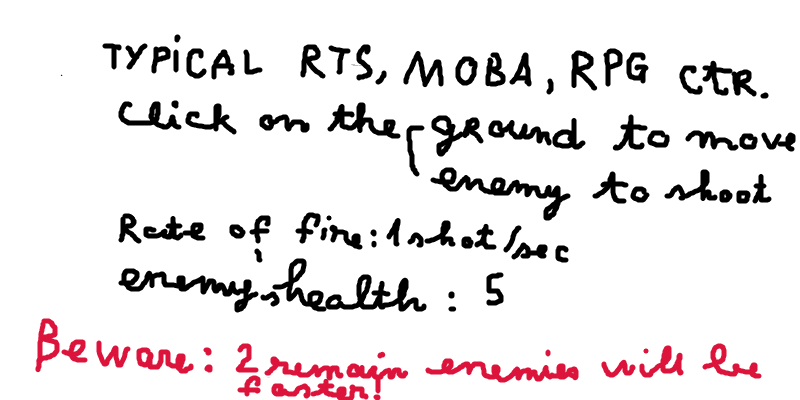 TYPiCAL RTS, MOBA, RPG CTR.
Click on the ground to move
enemy to shoot
Rate of fire: 1 shot/sec
enemy's health: 5
Beware: 2 remain enemies will be
faster!